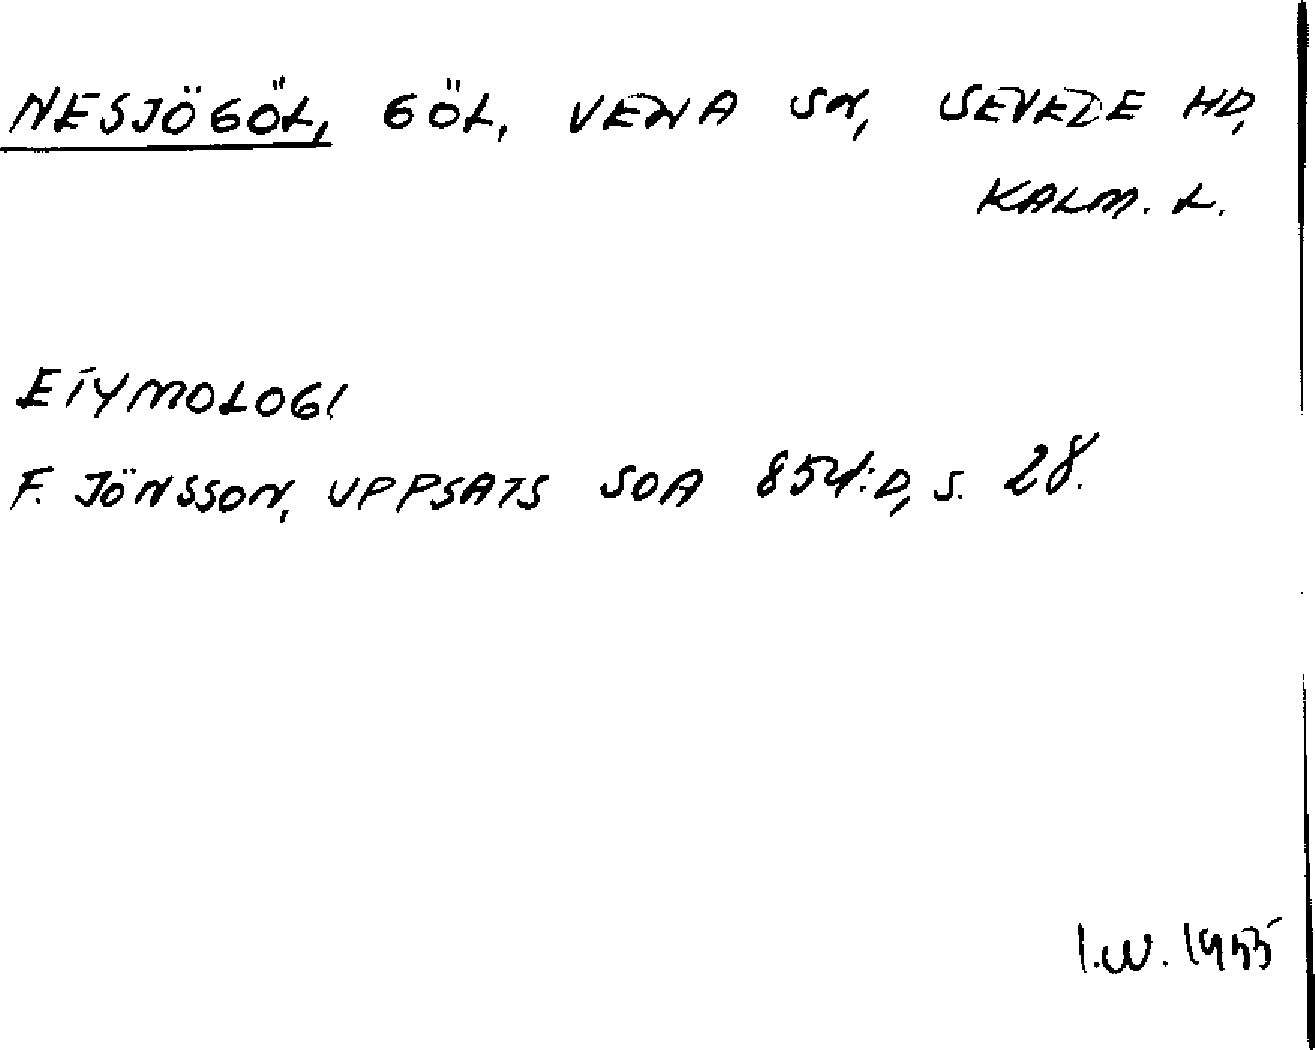 NESJÖGÖL, GÖL, VENA SN, SEVEDE HD,
KALM. L.
ETYMOLOGI
F. JÖNSSON, UPPSATS SOA 854:D, S. 28.
I.W. 1955